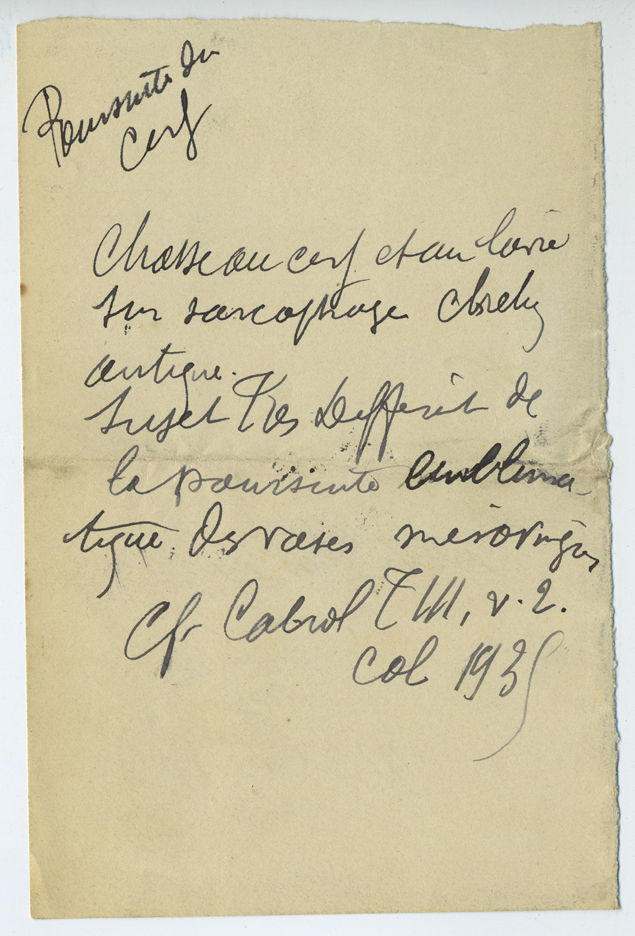 Poursuite du
cerf
Chasse au cerf et au lièvre
sur sarcophage chrétien
antique.
Sujet très différent de
la poursuite embléma-
tique des vases mérovingiens
Cfr Cabrol T III, v. 2.
col